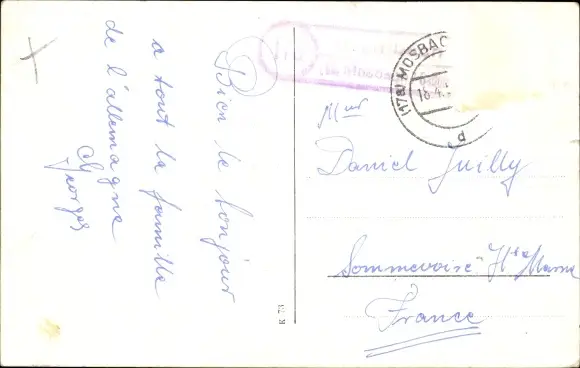 Bien le bonjour
a tout la famille
de l'allemagne
Georges
(17a) MOSBAC
18.4.
d
Meur
Daniel Juilly
Sommevoire Hte Marne
France